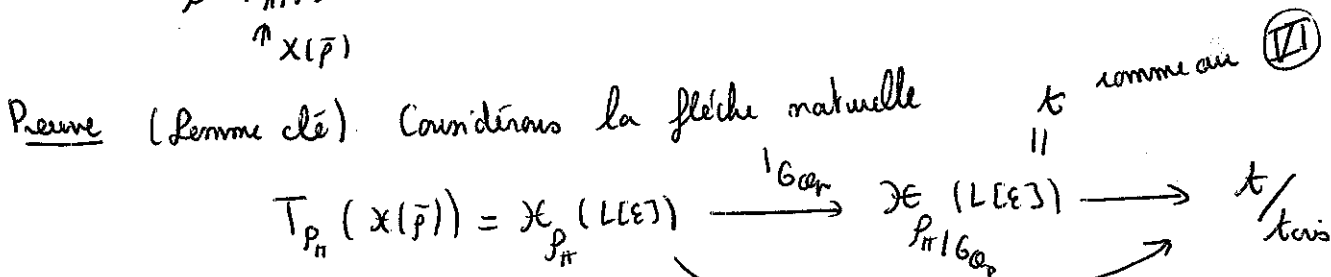 ↑ X(ρ̄)
Preuve (Lemme clé) Considérons la flèche naturelle t comme au VI
T_{ρ_π} (X(ρ̄)) = X_{ρ_π} (L[ε]) —|G_{Qp}→ X_{ρ_π|G_{Qp}} (L[ε]) → t/t_{cris}